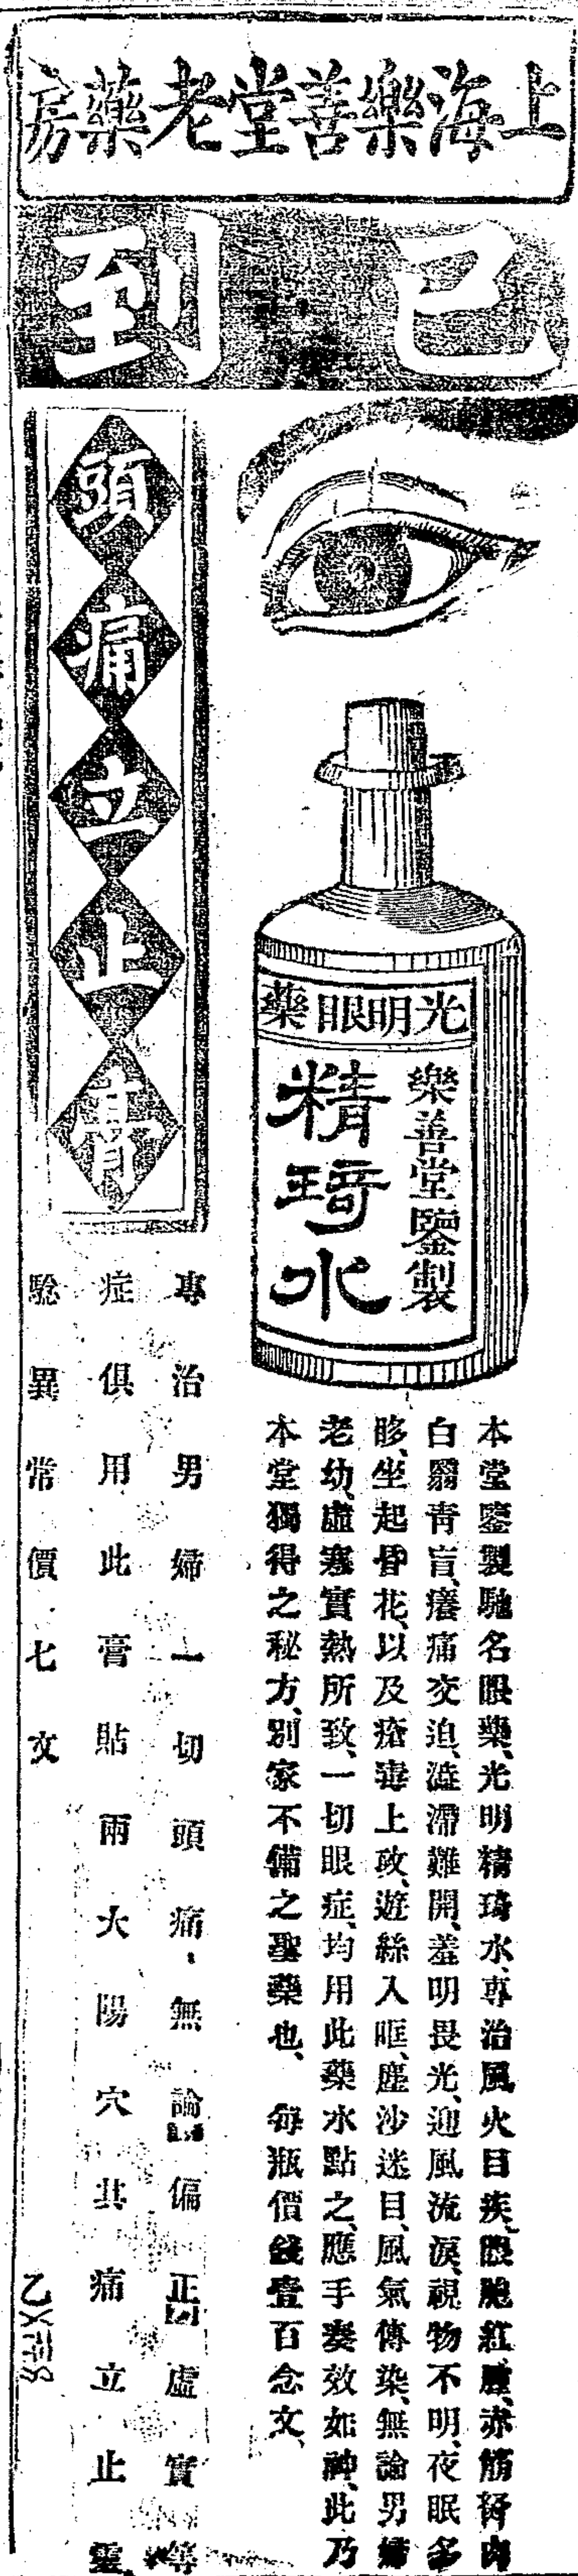 上海樂善堂老藥房
已到
光明眼藥
樂善堂鑒製
精琦水
本堂鑒製馳名眼藥、光明精琦水、專治風火目疾、眼胞紅腫、赤筋胬肉
白翳靑盲、癢痛交迫、澁滯難開、羞明畏光、迎風流淚、視物不明、夜眠多
眵、坐起昏花、以及瘡毒上攻、遊絲入眶、塵沙迷目、風氣傳染、無論男婦
老幼、虛寒實熱所致、一切眼症、均用此藥水點之、應手奏效如神、此乃
本堂獨得之秘方、別家不備之聖藥也、每瓶價錢壹百念文、
頭痛立止膏
專治男婦一切頭痛、無論偏正虛實等
症俱用此膏貼兩太陽穴其痛立止靈
驗異常價七文